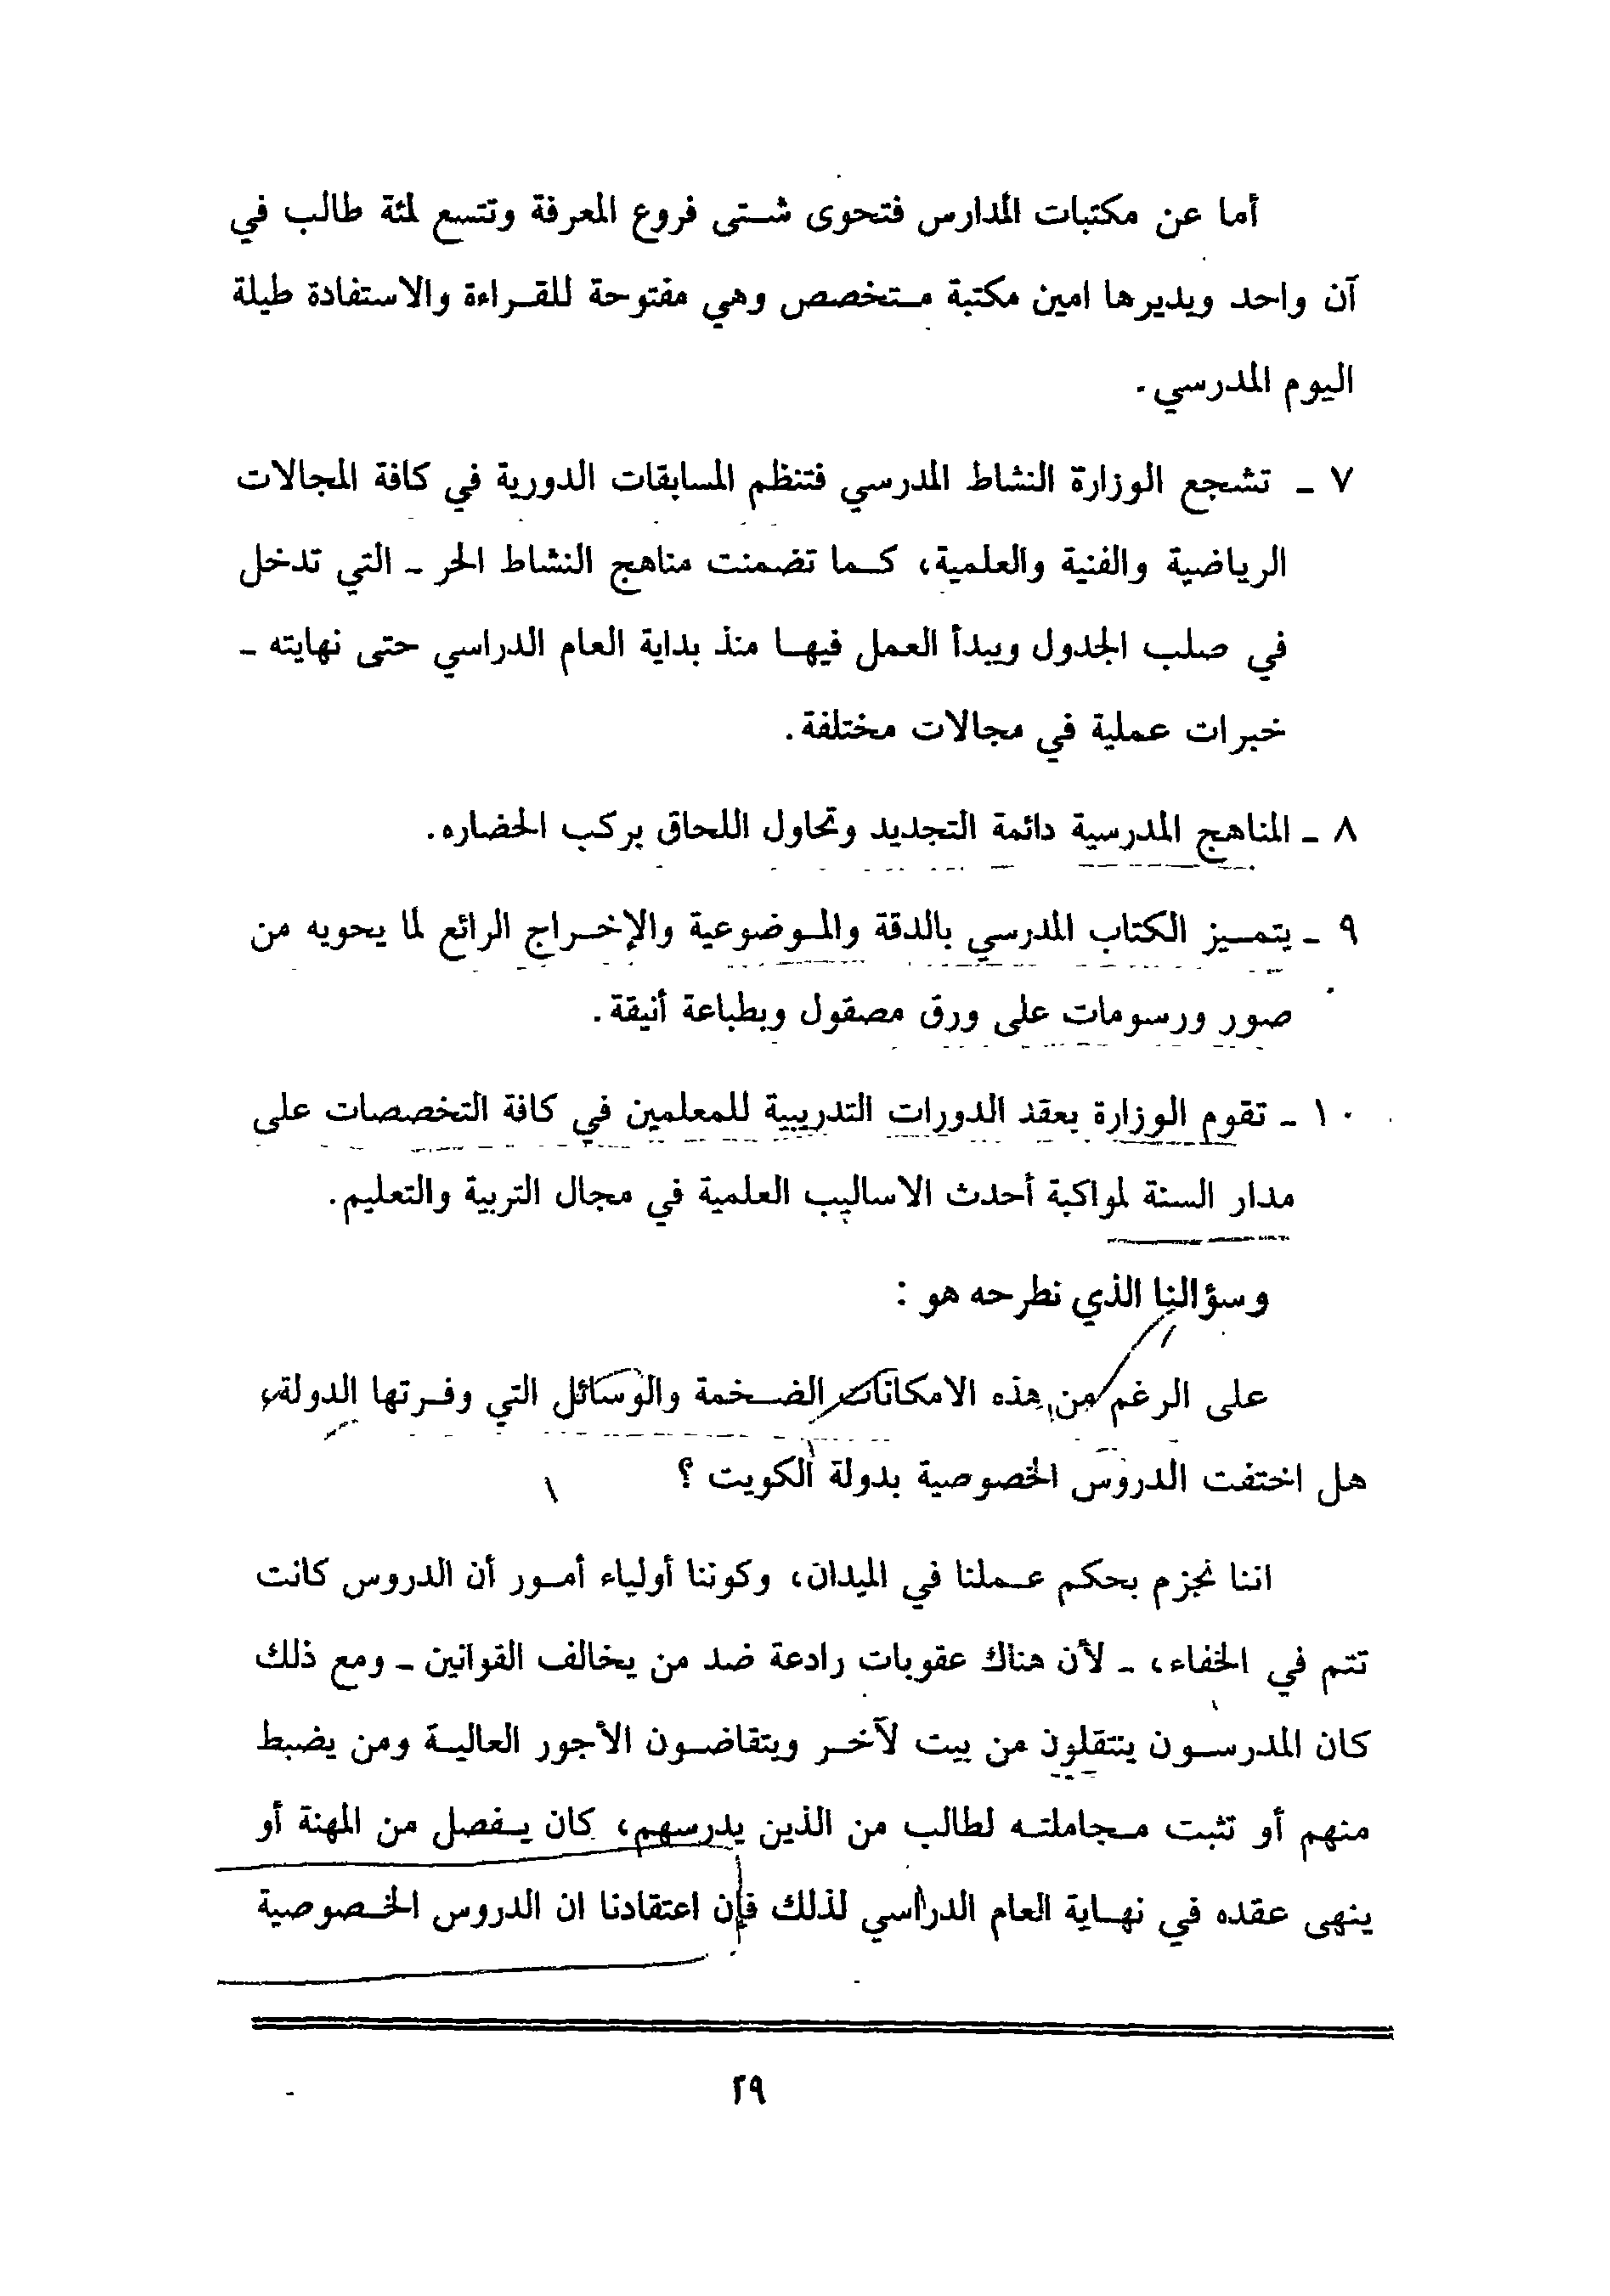 أما عن مكتبات المدارس فتحوى شتى فروع المعرفة وتتسع لمئة طالب في
آن واحد ويديرها امين مكتبة متخصص وهي مفتوحة للقراءة والاستفادة طيلة
اليوم المدرسي.
٧ ـ تشجع الوزارة النشاط المدرسي فتنظم المسابقات الدورية في كافة المجالات
الرياضية والفنية والعلمية، كما تضمنت مناهج النشاط الحر ـ التي تدخل
في صلب الجدول ويبدأ العمل فيها منذ بداية العام الدراسي حتى نهايته ـ
خبرات عملية في مجالات مختلفة.
٨ ـ المناهج المدرسية دائمة التجديد وتحاول اللحاق بركب الحضاره.
٩ ـ يتميز الكتاب المدرسي بالدقة والموضوعية والإخراج الرائع لما يحويه من
صور ورسومات على ورق مصقول وبطباعة أنيقة.
١٠ ـ تقوم الوزارة بعقد الدورات التدريبية للمعلمين في كافة التخصصات على
مدار السنة لمواكبة أحدث الاساليب العلمية في مجال التربية والتعليم.
وسؤالنا الذي نطرحه هو :
على الرغم من هذه الامكانات الضخمة والوسائل التي وفرتها الدولة،
هل اختفت الدروس الخصوصية بدولة الكويت ؟
اننا نجزم بحكم عملنا في الميدان، وكوننا أولياء أمور أن الدروس كانت
تتم في الخفاء، ـ لأن هناك عقوبات رادعة ضد من يخالف القوانين ـ ومع ذلك
كان المدرسون ينتقلون من بيت لآخر ويتقاضون الأجور العالية ومن يضبط
منهم أو تثبت مجاملته لطالب من الذين يدرسهم، كان يفصل من المهنة أو
ينهى عقده في نهاية العام الدراسي لذلك فإن اعتقادنا ان الدروس الخصوصية
٢٩